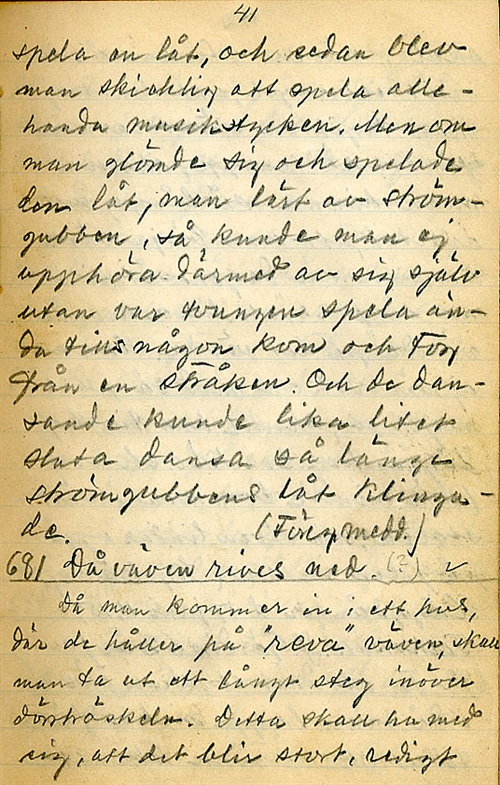 41
spela en låt, och sedan blev
man skicklig att spela alle-
handa musikstycken. Men om
man glömde sig och spelade
den låt, man lärt av ström-
gubben, så kunde man ej
upphöra därmed av sig själv
utan var tvungen spela än-
da tills någon kom och tog
från en stråken. Och de dan-
sande kunde lika litet
sluta dansa så länge
strömgubbens låt klinga-
de. (Föreg. medd.)
681 Då väven rives ned. (?) ✓
Då man kommer in i ett hus,
där de håller på "reva" väven, skall
man ta ut ett långt steg inöver
dörrtröskeln. Detta skall ha med
sig, att det blir stort, redigt